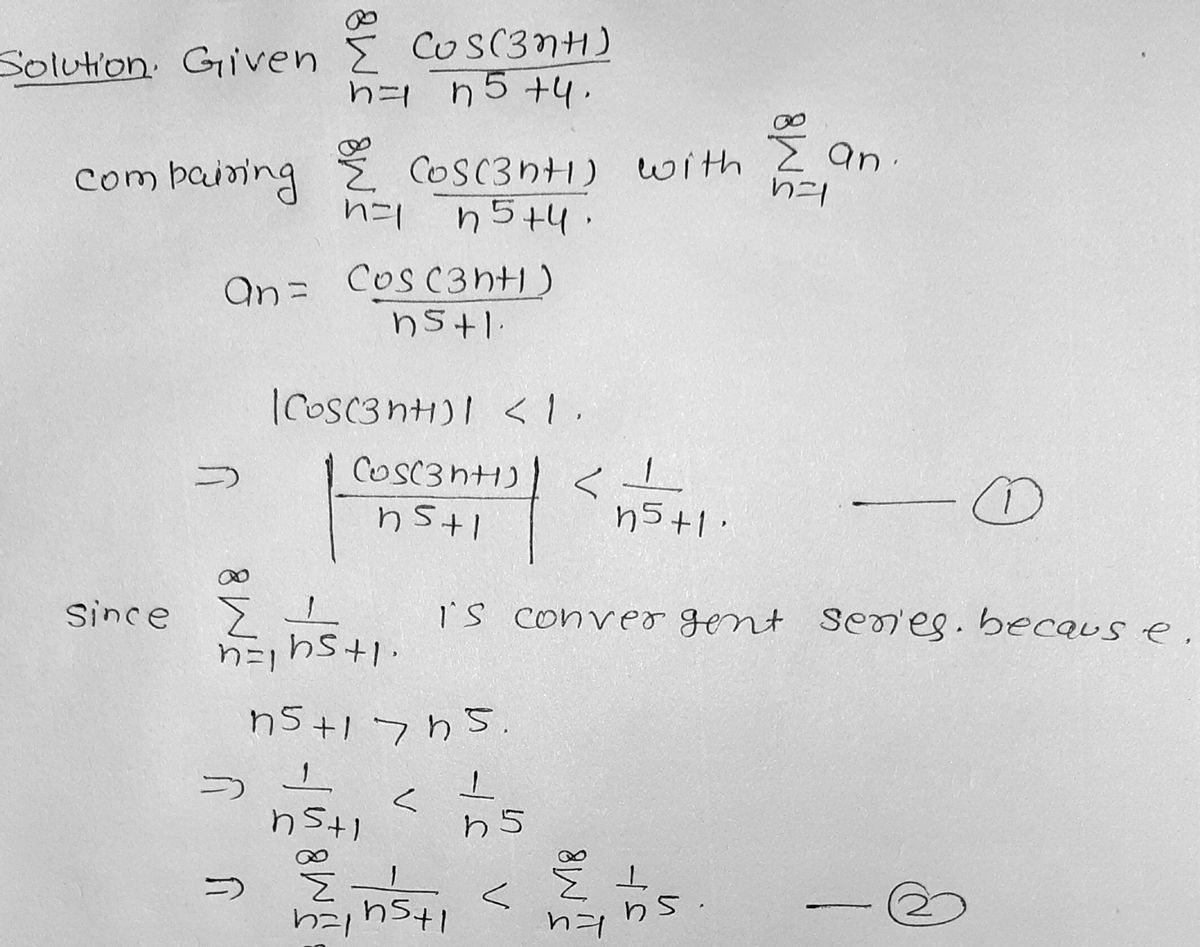 Solution. Given ∞ Σ n=1 cos(3n+1) / n5+4.
compairing ∞ Σ n=1 cos(3n+1) / n5+4. with ∞ Σ n=1 an.
an = cos(3n+1) / n5+1.
|cos(3n+1)| < 1.
⇒ | cos(3n+1) / n5+1 | < 1 / n5+1. — ①
since ∞ Σ n=1 1 / n5+1. is convergent series. because.
n5+1 > n5.
⇒ 1 / n5+1 < 1 / n5
⇒ ∞ Σ n=1 1 / n5+1 < ∞ Σ n=1 1 / n5. — ②